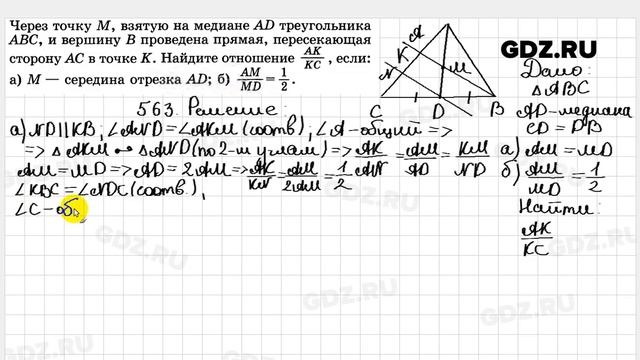 Через точку M, взятую на медиане AD треугольника
ABC, и вершину B проведена прямая, пересекающая
сторону AC в точке K. Найдите отношение AK/KC, если:
а) M — середина отрезка AD; б) AM/MD = 1/2.
A
K
N
M
C
D
B
GDZ.RU
Дано:
△ABC
AD-медиана
CD = DB
а) AM = MD
б) AM/MD = 1/2
Найти:
AK/KC
563. Решение:
а) ND||KB; ∠AND=∠AKM (соотв), ∠A-общий =>
=> △AKM ∽ △AND (по 2-м углам) => AK/AN = AM/AD = KM/ND
AM=MD => AD = 2AM => AK/KN = AM/2AM = 1/2
∠KBC = ∠NDC (соотв.),
∠C-об
GDZ.RU
GDZ.RU
GDZ.RU
GDZ.RU